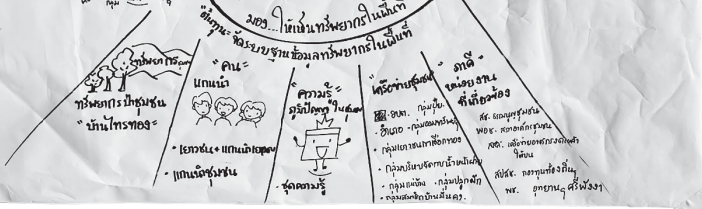 กลุ่ม
มอง...ให้เห็นทรัพยากรในพื้นที่
"ต้นทุน" จัดระบบฐานข้อมูลทรัพยากรในพื้นที่
ทรัพยากร
ทรัพยากรป่าชุมชน
"บ้านไทรทอง"
"คน"
แกนนำ
• เยาวชน + แกนนำเยาวชน
• แกนนำชุมชน
"ความรู้"
ภูมิปัญญา ในชุมชน
• ชุดความรู้
"เครือข่ายชุมชน"
• อบต. กลุ่มปุ๋ย
• อำเภอ • กลุ่มออมทรัพย์
• กลุ่มเยาวชนภาคีอีกทอง
• กลุ่มบริหารจัดการน้ำ
• กลุ่มแม่บ้าน • กลุ่มปลูกผัก
• กลุ่มสมาชิกบ้านมั่นคง
"ภาคี"
หน่วยงาน
ที่เกี่ยวข้อง
พอช. สภาองค์กรชุมชน
สสส.
ใต้บน
สปสช. กองทุนท้องถิ่น
พช. อุทยานฯ ศรีพังงา